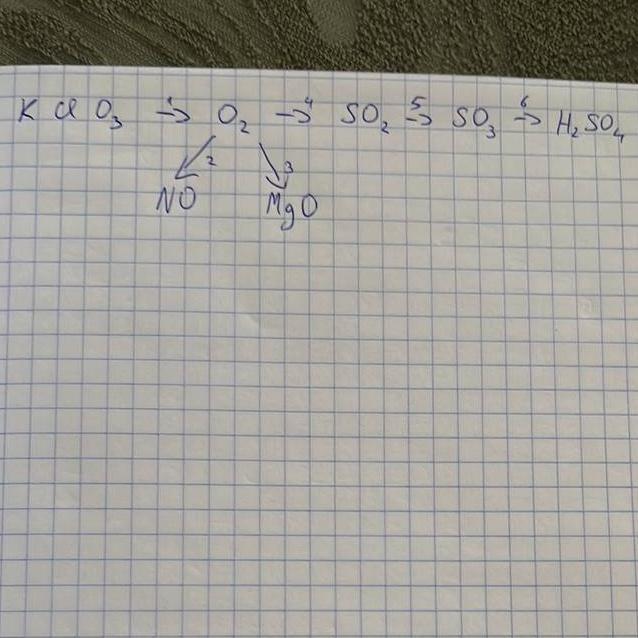 KClO₃ →¹ O₂ →⁴ SO₂ →⁵ SO₃ →⁶ H₂SO₄
↙2 ↘3
NO MgO